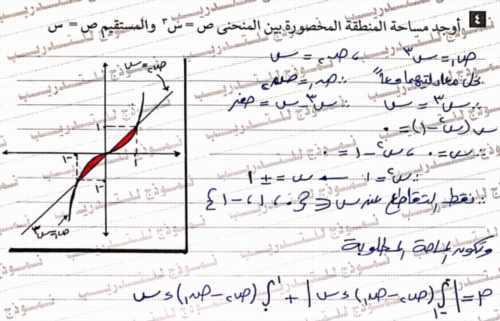 ٤ أوجد مساحة المنطقة المحصورة بين المنحنى ص = س٣ والمستقيم ص = س
ص١ = س٣ ، ص٢ = س
بحل معادلتيهما معاً ∴ ص١ = ص٢
∴ س٣ = س ∴ س٣ - س = صفر
س (س٢ - ١) = ٠
∴ س = ٠ ، س٢ - ١ = ٠
∴ س٢ = ١ ← س = ± ١
∴ نقط التقاطع عند س ∈ {٠ ، ١ ، -١}
وتكون المساحة المطلوبة
م = | ∫ (ص٢ - ص١) ء س | + ∫ (ص٢ - ص١) ء س
ص٢ = س
١
-١
١
-١
ص١ = س٣
نموذج للتدريب